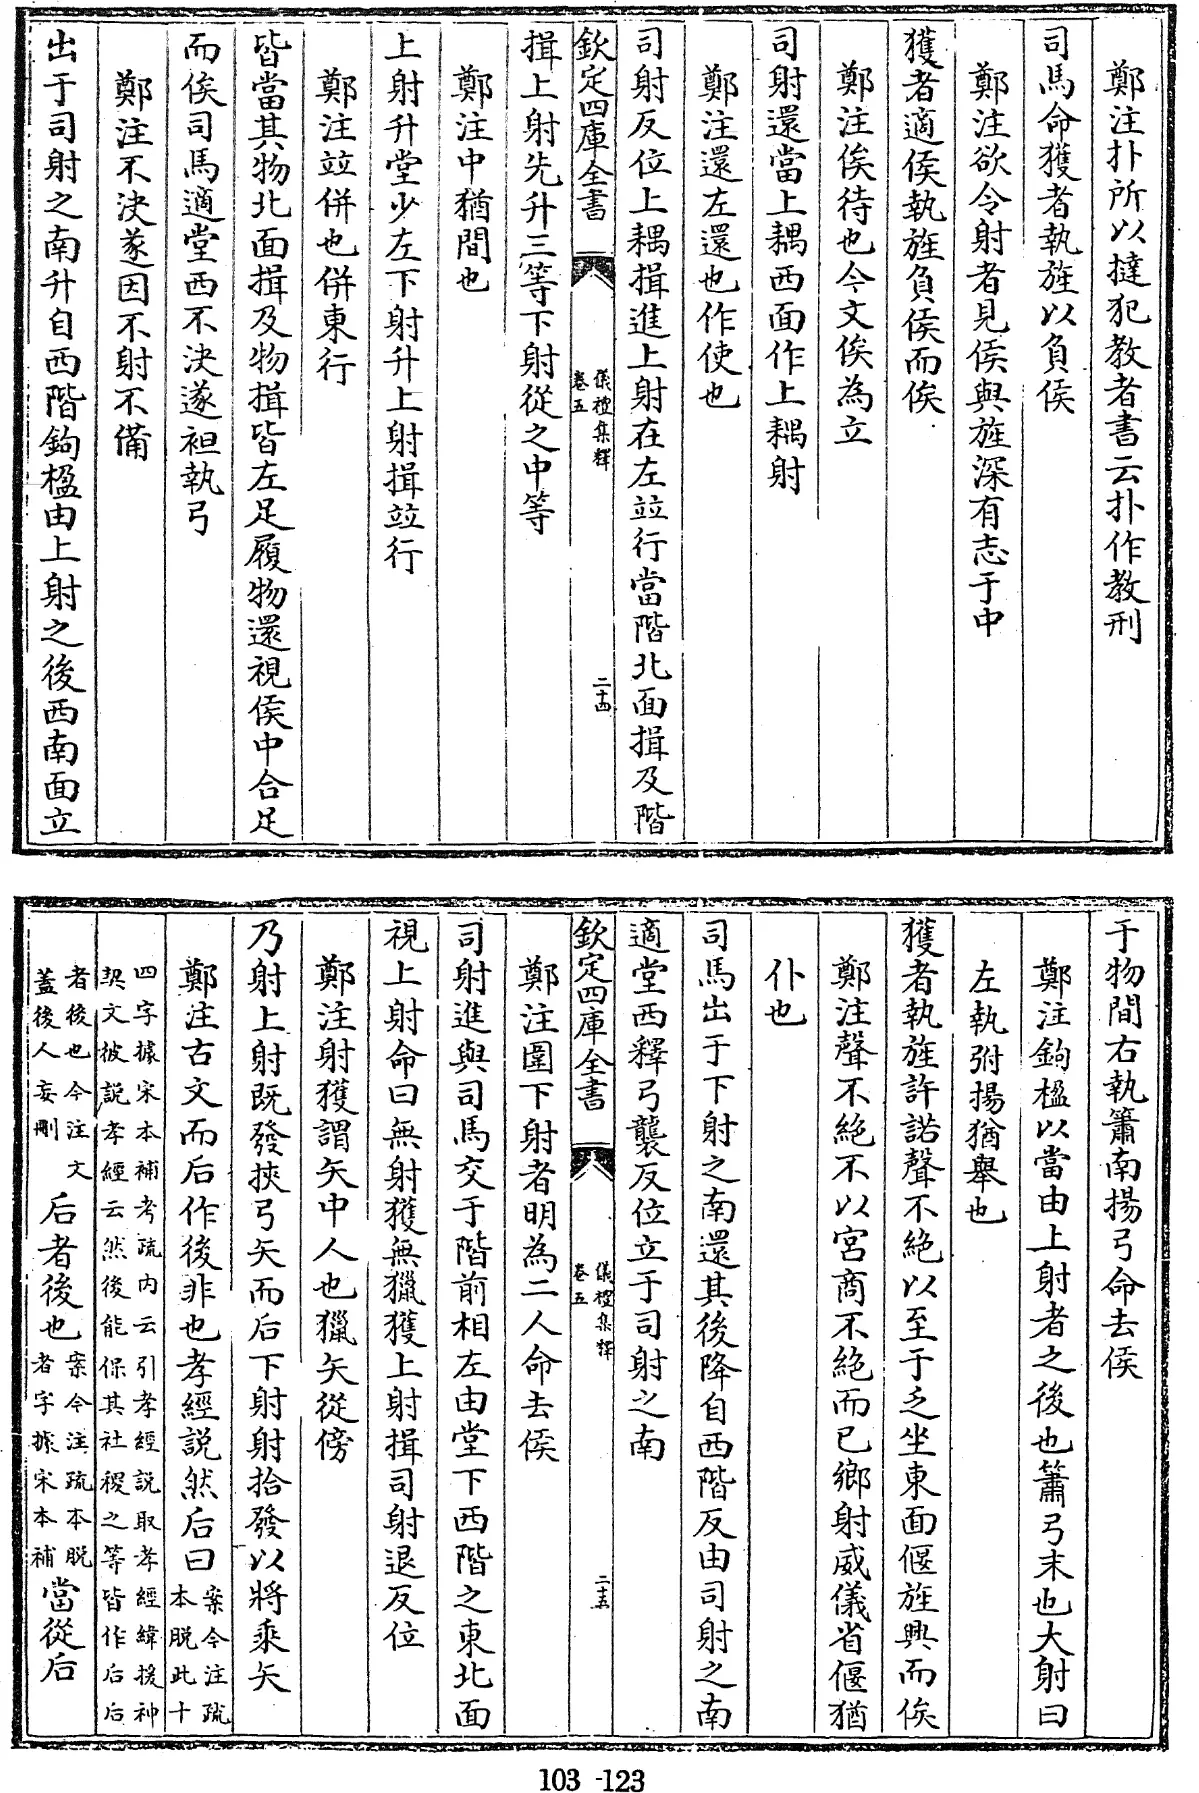 鄭注扑所以撻犯教者書云扑作教刑
司馬命獲者執旌以負侯
鄭注欲令射者見侯與旌深有志于中
獲者適侯執旌負侯而俟
鄭注俟待也今文俟為立
司射還當上耦西面作上耦射
鄭注還左還也作使也
司射反位上耦揖進上射在左竝行當階北面揖及階
欽定四庫全書
儀禮集釋
卷五
二十四
揖上射先升三等下射從之中等
鄭注中猶間也
上射升堂少左下射升上射揖竝行
鄭注竝併也併東行
皆當其物北面揖及物揖皆左足履物還視侯中合足
而俟司馬適堂西不决遂袒執弓
鄭注不决遂因不射不備
出于司射之南升自西階鉤楹由上射之後西南面立
于物間右執簫南揚弓命去侯
鄭注鉤楹以當由上射者之後也簫弓末也大射曰
左執弣揚猶舉也
獲者執旌許諾聲不絶以至于乏坐東面偃旌興而俟
鄭注聲不絶不以宮商不絶而已鄉射威儀省偃猶
仆也
司馬出于下射之南還其後降自西階反由司射之南
適堂西釋弓襲反位立于司射之南
欽定四庫全書
儀禮集釋
卷五
二十五
鄭注圍下射者明為二人命去侯
司射進與司馬交于階前相左由堂下西階之東北面
視上射命曰無射獲無獵獲上射揖司射退反位
鄭注射獲謂矢中人也獵矢從傍
乃射上射既發挾弓矢而后下射射拾發以將乘矢
鄭注古文而后作後非也孝經説然后曰案今注疏本脱此十
四字據宋本補考疏内云引孝經説取孝經緯援神契文彼説孝經云然後能保其社稷之等皆作后后
者後也今注文蓋後人妄刪后者後也案今注疏本脱者字據宋本補當從后
103-123